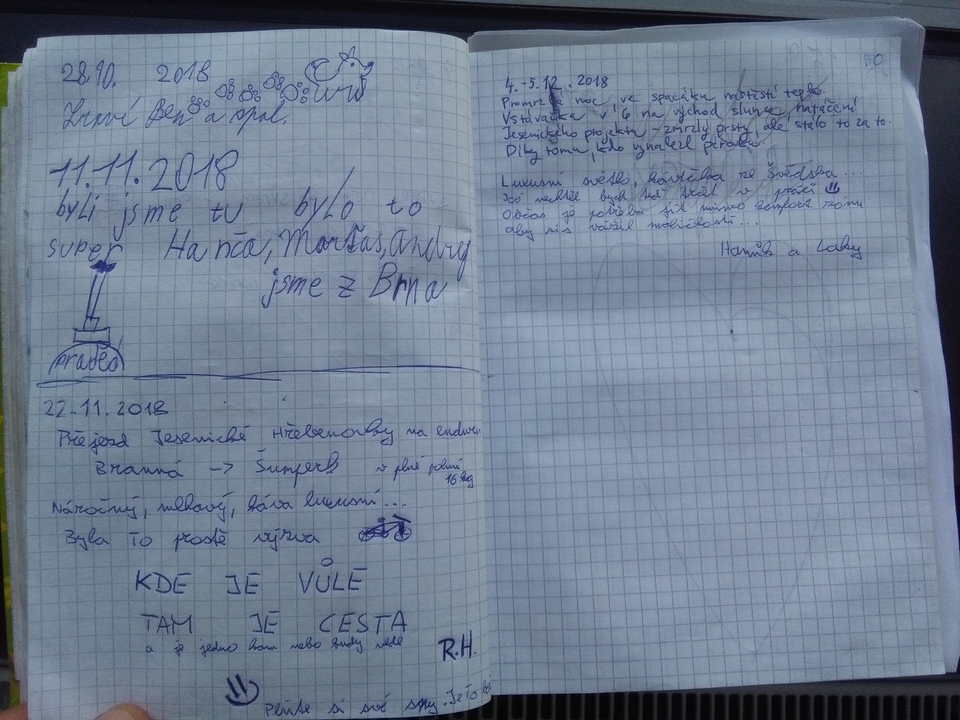 28.10. 2018
Zdraví Ben a spol.
11.11.2018
byli jsme tu bylo to
super Hanča, Andry
jsme z Brna
praděd
22.11.2018
Přejezd Jesenické Hřebenovky na enduru
Branná -> Šumperk v plné polní
16 kg
Náročný, mlhavý, káva luxusní...
Byla to prostě výzva
KDE JE VŮLE
TAM JE CESTA
a je jedno kam nebo kudy vede
R.H.
Plňte si své sny. Je to
50
4.-5.12.2018
Promrzlá noc, ve spacáku naštěstí teplo.
Vstávačka v 6 na východ slunce, natáčení
Jesenického projektu - zmrzlý prsty, ale stálo to za to.
Díky tomu, kdo vynalezl péřovku.
Luxusní světlo, kávička ze Švédska...
bych teď v práci
Občas je potřeba jít mimo komfort zónu
aby sis vážil maličkostí...
Haník a Laky